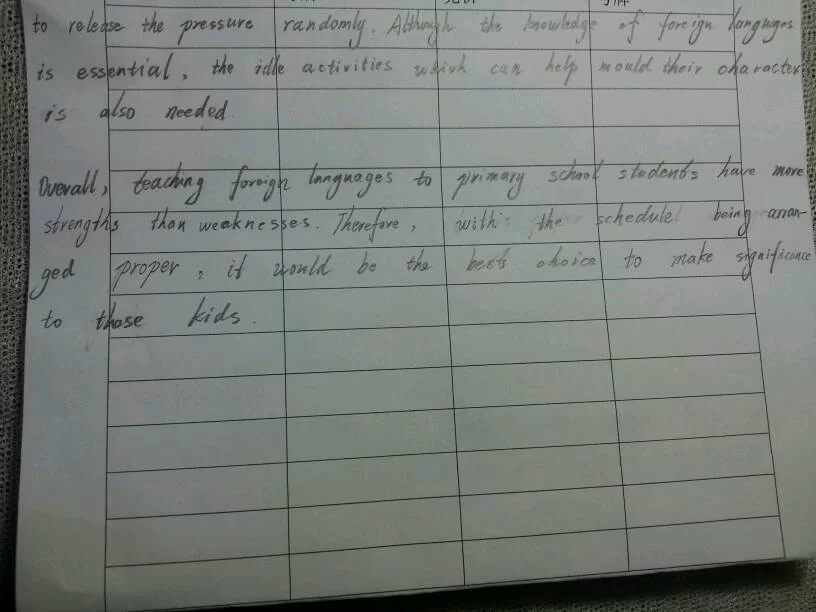 to release the pressure randomly. Although the knowledge of foreign languages
is essential, the idle activities which can help mould their character
is also needed.
Overall, teaching foreign languages to primary school students have more
strengths than weaknesses. Therefore, with the schedule being arran-
ged proper, it would be the best choice to make significance
to those kids.